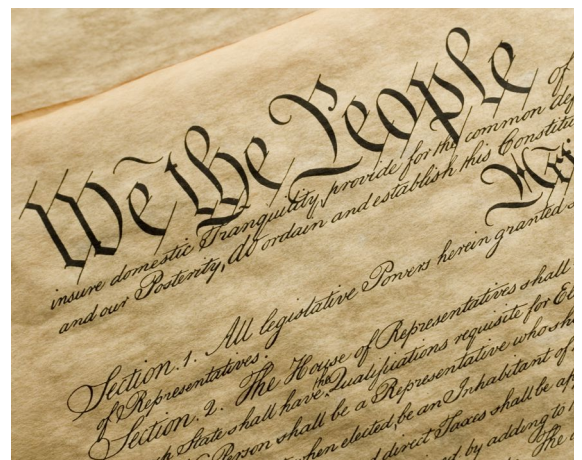 We the People of
insure domestic Tranquility, provide for the common def
and our Posterity, do ordain and establish this Constitu
Section. 1. All legislative Powers herein granted s
of Representatives.
Section. 2. The House of Representatives shall
State shall have the Qualifications requisite for El
Person shall be a Representative who sh
when elected, be an Inhabitant of
direct Taxes shall be ap
by adding to
The